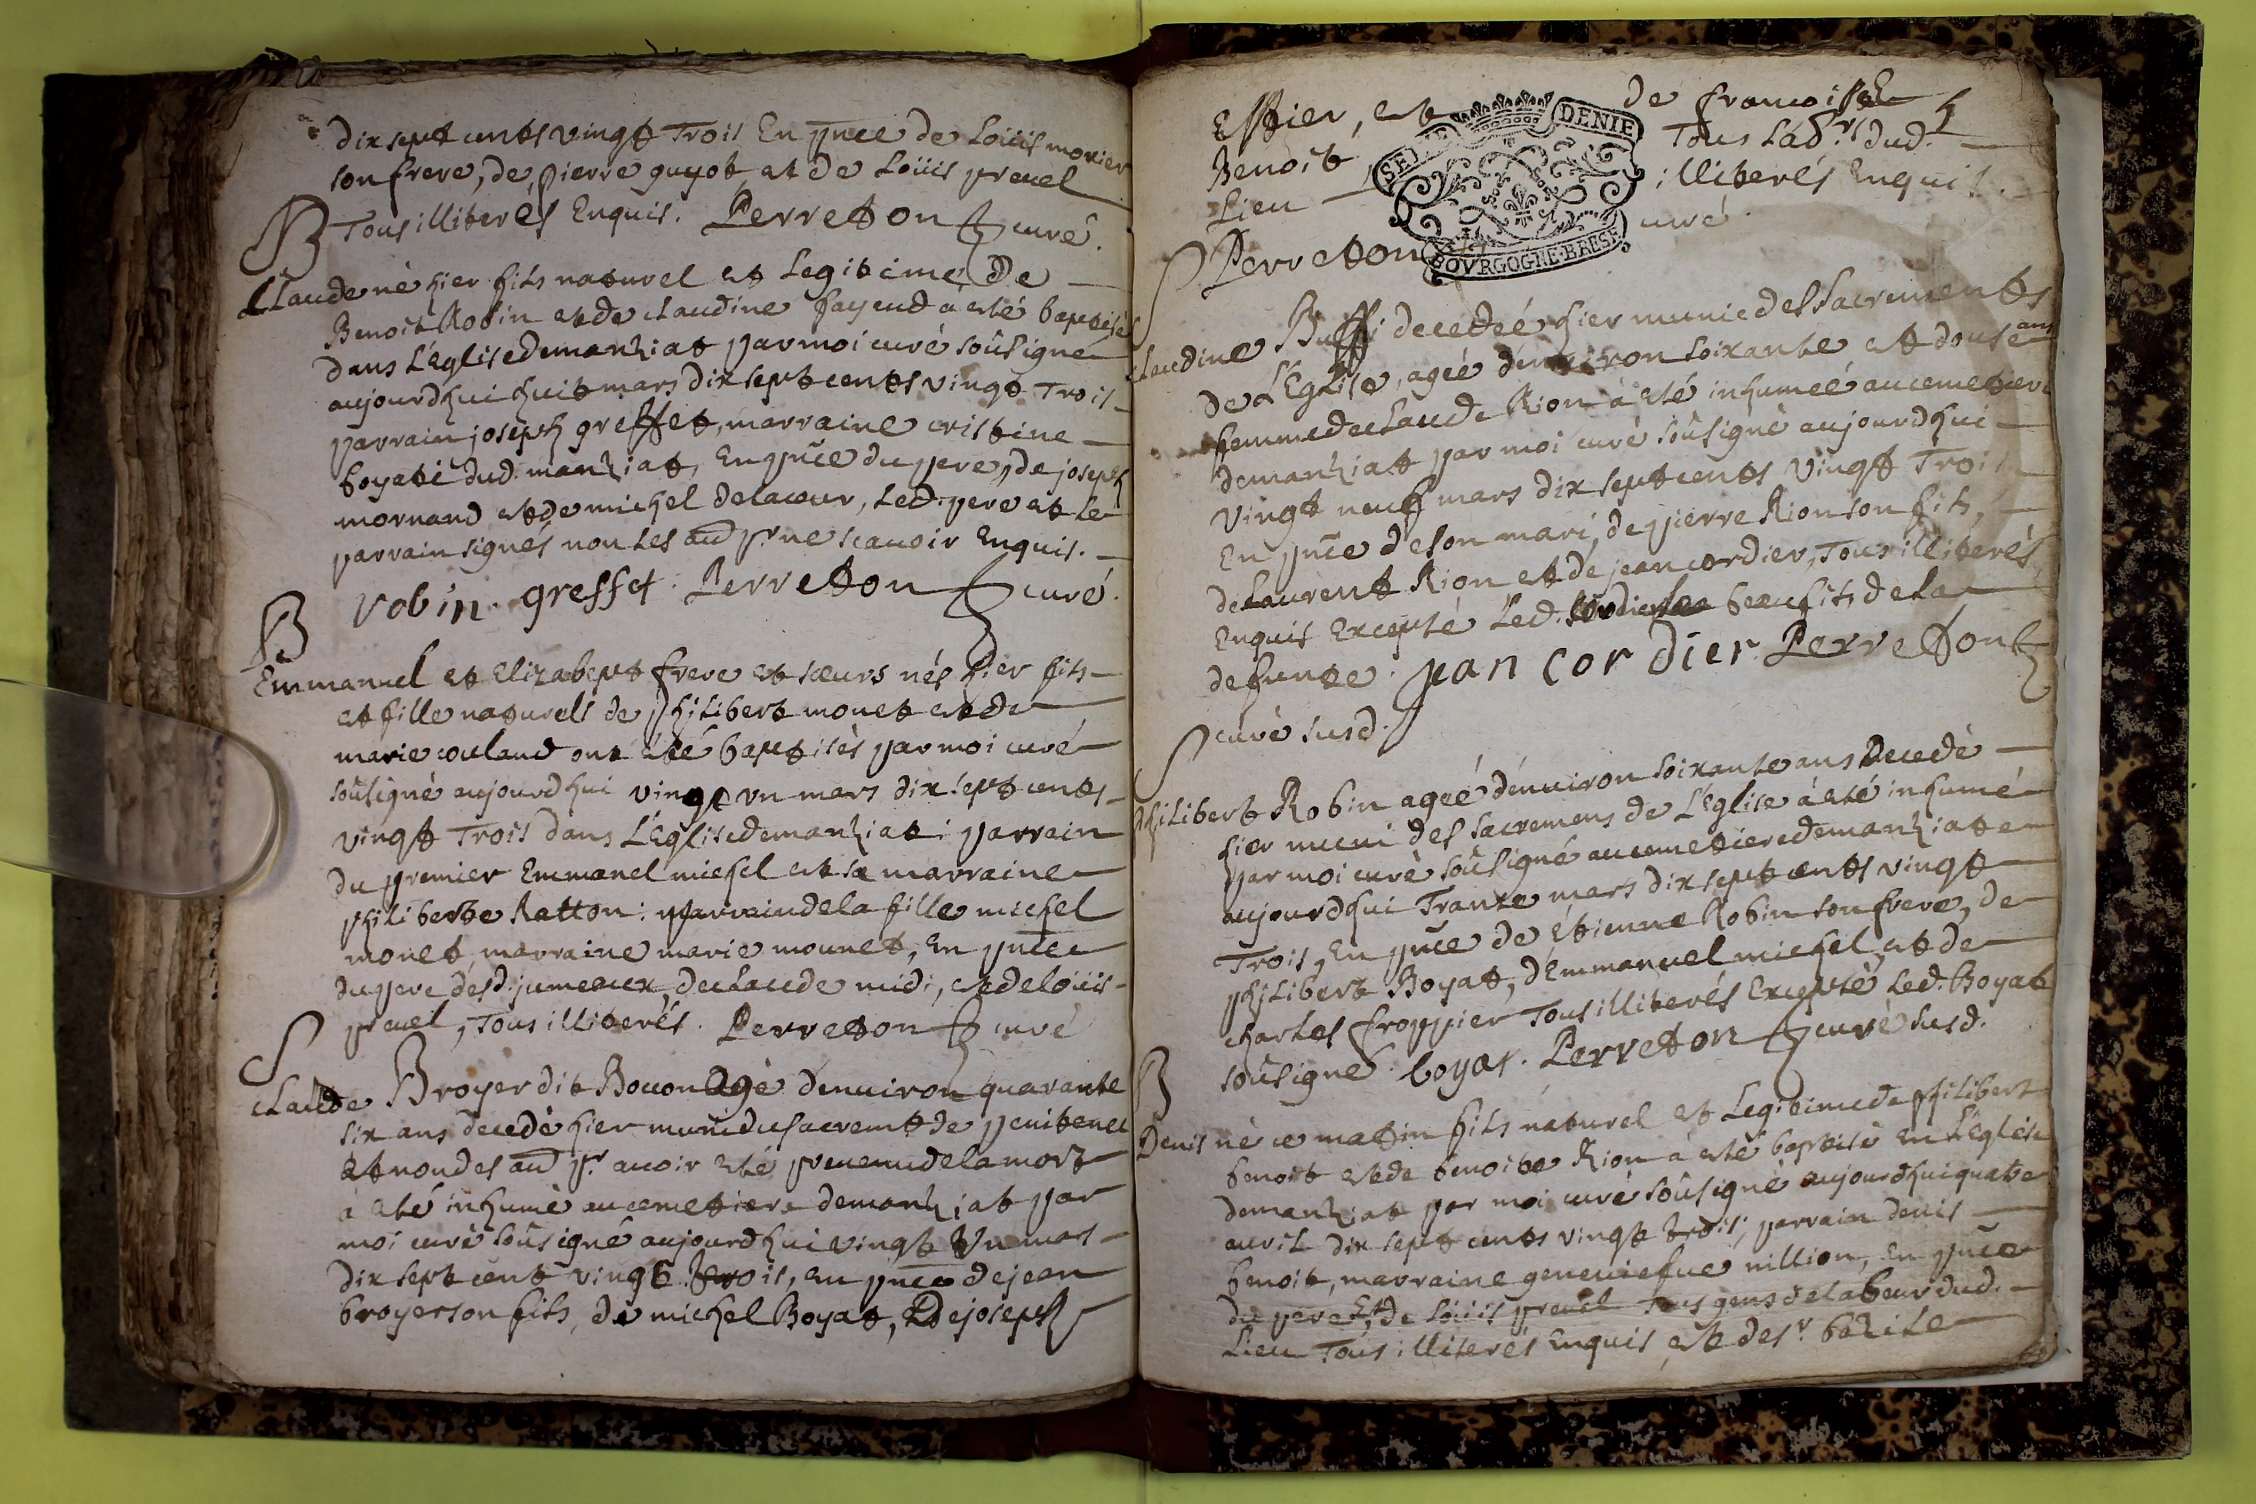 dix sept cents vingt Trois En pnce de Loüis morier
son frere, de pierre guyot et de Loüis preuel
B Tous illiterés Enquis. Perreton curé.
Claude né hier fils naturel et Legitime De
Benoit Robin et de claudine fayend a eté baptisé
dans L'Eglise de manziat par moi curé soûsigné
aujourdhui huit mars dix sept cents vingt Trois
parrain joseph greffet, marraine cristine
boyati dud. manziat, En pnce du pere, de joseph
mornand et de michel delacour, Led. pere et Le
parrain signés non Les aud pr ne scavoir Enquis.
robin. greffet. Perreton curé.
B
Emmanuel et Elizabept frere et sœurs nés hier fils
et fille naturels de philibert monet et de
marie couland ont eté baptisés par moi curé
soûsigné aujourdhui vingt un mars dix sept cents
vingt Trois dans L'Eglise de manziat: parrain
du premier Emmanel michel et sa marraine
philiberte Ratton: parrain de la fille michel
monet, marraine marie mounet, En pnce
du pere desd. jumeaux, de claude midi, et de loüis
preuel, Tous illiterés. Perreton curé
S
claude Broyer dit Bouon Agé denuiron quarante
six ans decedé hier muni du sacremt de penitence
et non des aud pr auoir eté preuenu de la mort
a eté inhumé au cemetiere de manziat par
moi curé soûsigné aujourdhui vingt Un mars
dix sept cent vingt trois, en pnce de jean
broyer son fils, de michel Boyat, De joseph
Effier, et de francoise
Benoit, Tous Labrs dud.
Lieu illiterés Enquis.
Perreton curé
SEI DENIE
BOURGOGNE·BRESE
S
claudine Buffi decedeé hier munie des sacrements
de L'Eglise, ageé denuiron soixante et douse ans
femme de claude Rion à eté inhumeé au cemetiere
de manziat par moi curé soûsigné aujourdhui
vingt neuf mars dix sept cents vingt Trois
En pnce de son mari, de pierre Rion son fils,
de Laurent Rion et de jean cordier, Tous illiterés
Enquis Excepté Led. Cordier beaufils de la
defunte. jean cordier. Perreton
curé susd.
S
philibert Robin ageé d'enuiron soixante ans Decedé
hier muni des sacremens de L'Eglise à eté inhumé
par moi curé soûsigné au cemetiere de manziate
aujourdhui Trante mars dix sept cents vingt
Trois, En pnce de etienne Robin son frere, de
philibert Boyat, d'Emmanuel michel, et de
charles froppier Tous illiterés Excepté Led. Boyat
soûsigné. boyat. Perreton curé susd.
B
Denis né ce matin fils naturel et Legitime de philibert
benoit et de benoite Rion a eté baptisé En L'Eglise
de manziat par moi curé soûsigné aujourdhui quatre
auril dix sept cents vingt trois, parrain denis
benoit, marraine geneuiefue nillion, En pnce
du pere Et de Loüis preuel Tous gens de labeur dud.
Lieu Tous illiterés Enquis, et de sr bazile